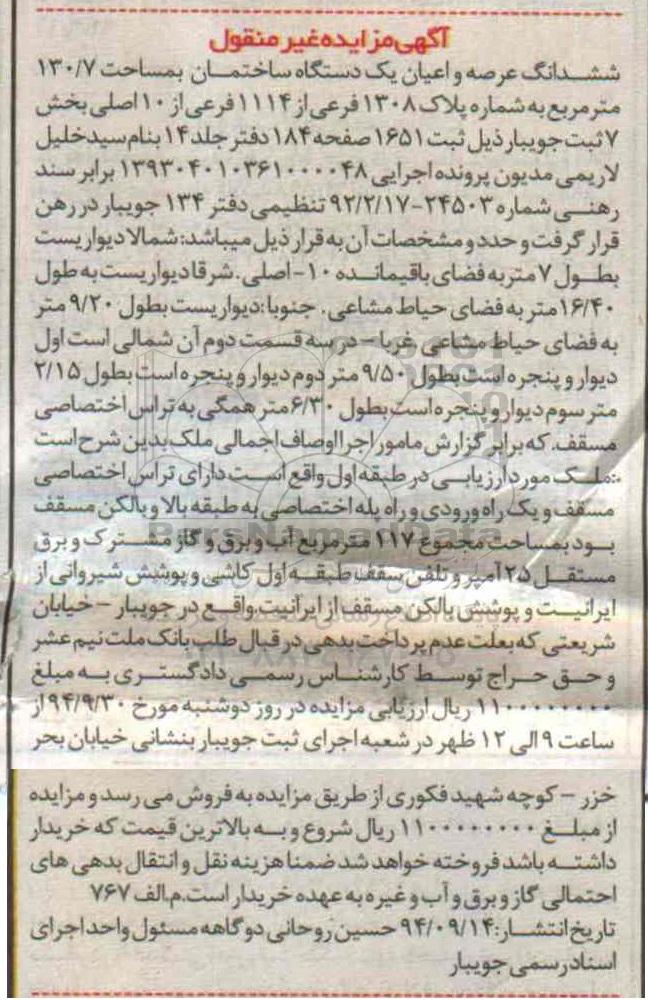 آگهی مزایده غیر منقول
ششدانگ عرصه و اعیان یک دستگاه ساختمان بمساحت ۱۳۰/۷
مترمربع به شماره پلاک ۱۳۰۸ فرعی از ۱۱۱۴ فرعی از ۱۰ اصلی بخش
۷ ثبت جویبار ذیل ثبت ۱۶۵۱ صفحه ۱۸۴ دفتر جلد ۱۴ بنام سید خلیل
لاریمی مدیون پرونده اجرایی ۱۳۹۳۰۴۰۱۰۳۶۱۰۰۰۰۴۸ برابر سند
رهنی شماره ۲۴۵۰۳-۹۲/۲/۱۷ تنظیمی دفتر ۱۳۴ جویبار در رهن
قرار گرفت و حدد و مشخصات آن به قرار ذیل میباشد: شمالا دیواریست
بطول ۷ متر به فضای باقیمانده ۱۰-اصلی. شرقا دیواریست به طول
۱۶/۴۰ متر به فضای حیاط مشاعی. جنوبا: دیواریست بطول ۹/۲۰ متر
به فضای حیاط مشاعی. غربا – در سه قسمت دوم آن شمالی است اول
دیوار و پنجره است بطول ۹/۵۰ متر دوم دیوار و پنجره است بطول ۲/۱۵
متر سوم دیوار و پنجره است بطول ۶/۳۰ متر همگی به تراس اختصاصی
مسقف. که برابر گزارش مامور اجرا اوصاف اجمالی ملک بدین شرح است
:ملک مورد ارزیابی در طبقه اول واقع است دارای تراس اختصاصی
مسقف و یک راه ورودی و راه پله اختصاصی به طبقه بالا و بالکن مسقف
بود بمساحت مجموع ۱۱۷ مترمربع آب و برق و گاز مشترک و برق
مستقل ۲۵ آمپر و تلفن سقف طبقه اول کاشی و پوشش شیروانی از
ایرانیت و پوشش بالکن مسقف از ایرانیت. واقع در جویبار – خیابان
شریعتی که بعلت عدم پرداخت بدهی در قبال طلب بانک ملت نیم عشر
و حق حراج توسط کارشناس رسمی دادگستری به مبلغ
۱۱۰۰۰۰۰۰۰۰ ریال ارزیابی مزایده در روز دوشنبه مورخ ۹۴/۹/۳۰ از
ساعت ۹ الی ۱۲ ظهر در شعبه اجرای ثبت جویبار بنشانی خیابان بحر
خزر – کوچه شهید فکوری از طریق مزایده به فروش می رسد و مزایده
از مبلغ ۱۱۰۰۰۰۰۰۰۰ ریال شروع و به بالاترین قیمت که خریدار
داشته باشد فروخته خواهد شد ضمنا هزینه نقل و انتقال بدهی های
احتمالی گاز و برق و آب و غیره به عهده خریدار است. م.الف ۷۶۷
تاریخ انتشار: ۹۴/۰۹/۱۴ حسین روحانی دوگاهه مسئول واحد اجرای
اسناد رسمی جویبار